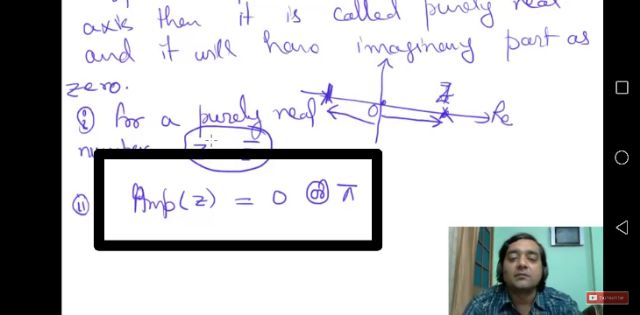 axis then it is called purely real
and it will have imaginary part as
zero.
(i) For a purely real
O Z Re
number z
(ii) Amp(z) = 0 or π